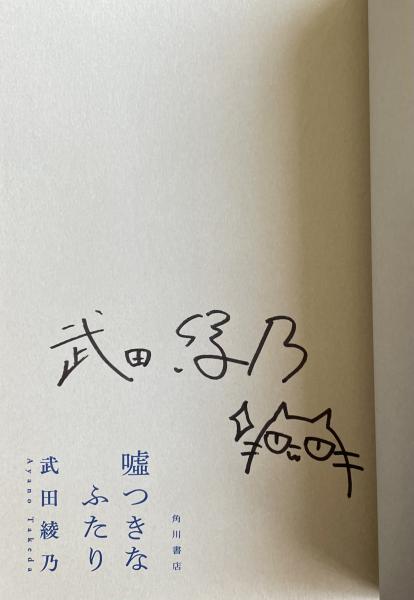 武田綾乃
嘘つきな
ふたり
武田綾乃
Ayano Takeda
角川書店